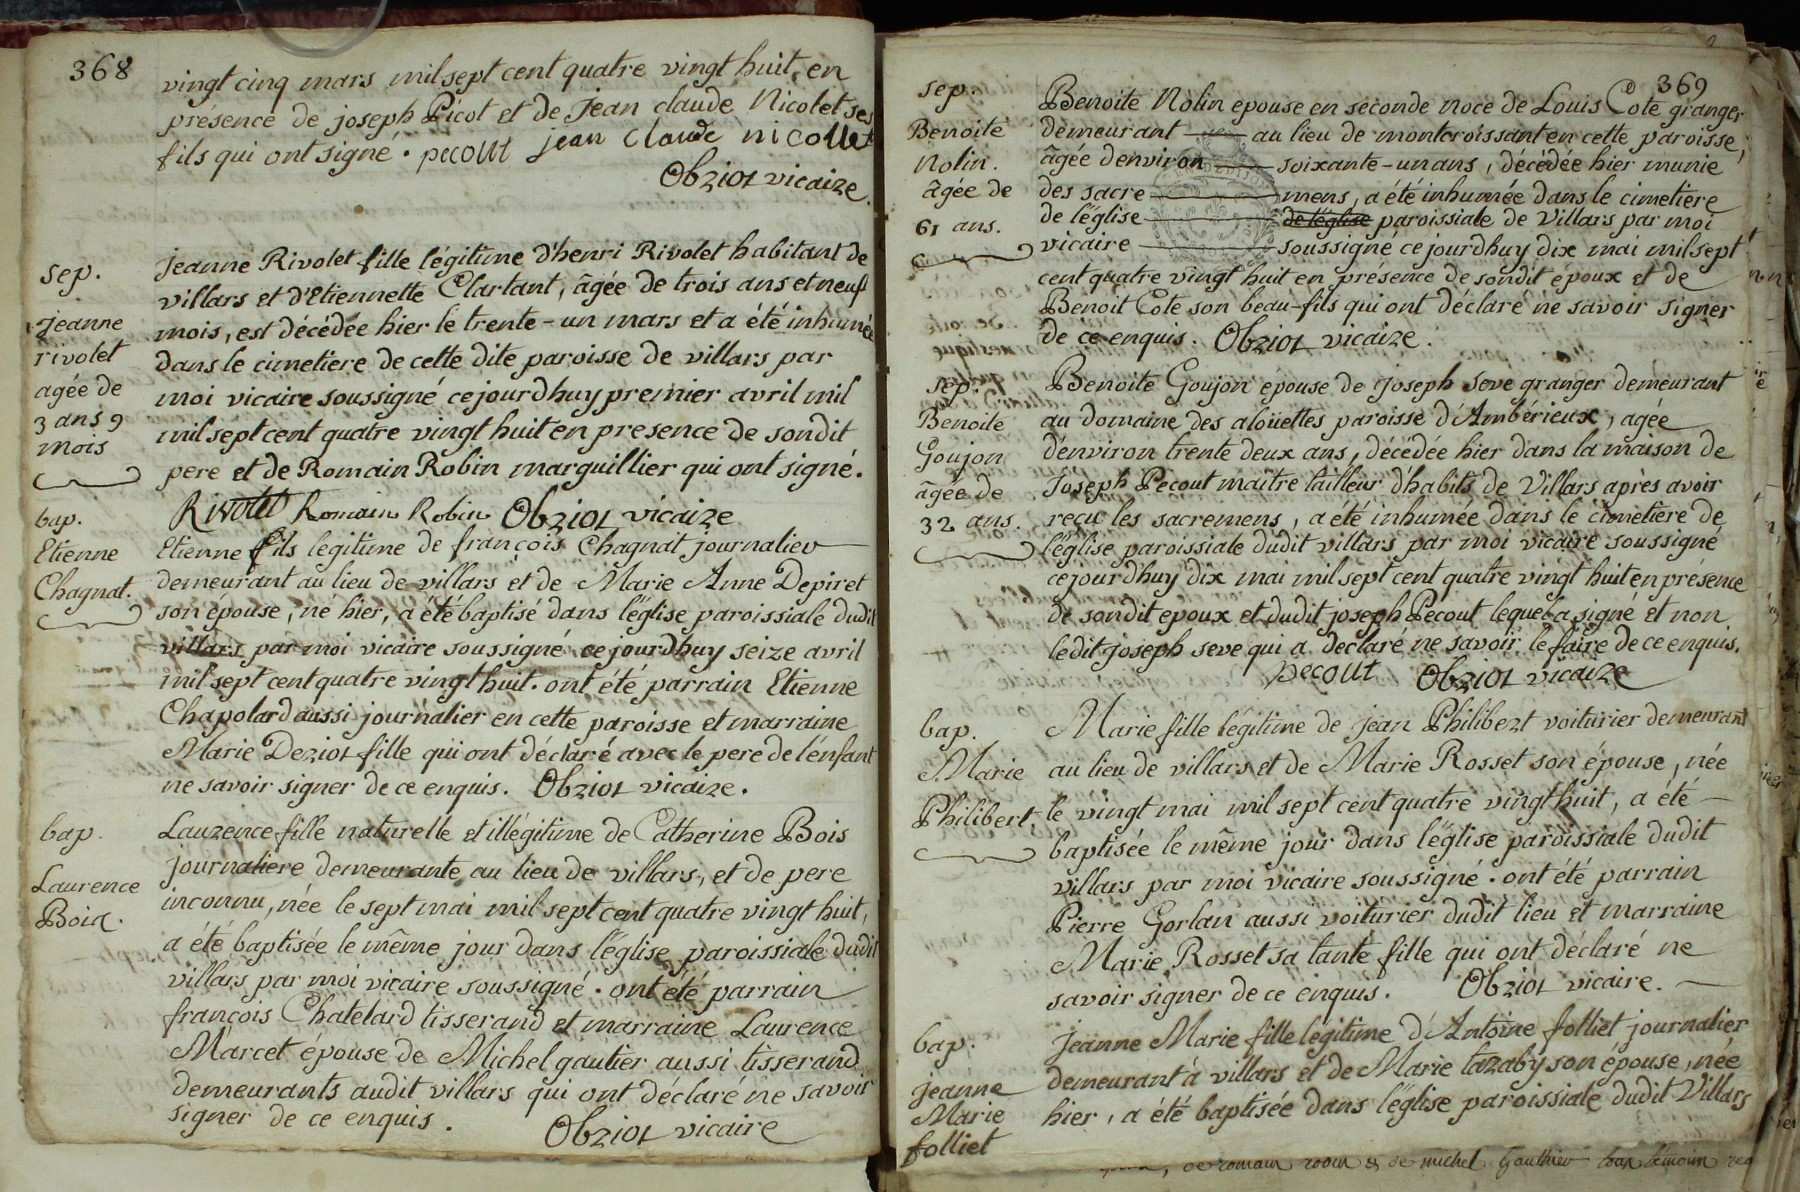 368
vingt cinq mars mil sept cent quatre vingt huit, en
présence de joseph Picot et de Jean claude Nicolet ses
fils qui ont signé. pecout jean claude nicollet
Obriot vicaire.
sep.
jeanne
rivolet
agée de
3 ans 9
mois
Jeanne Rivolet fille légitime d'henri Rivolet habitant de
villars et d'Etiennette Clartant, âgée de trois ans et neuf
mois, est décédée hier le trente-un mars et a été inhumée
dans le cimetiere de cette dite paroisse de villars par
moi vicaire soussigné cejourdhuy premier avril mil
mil sept cent quatre vingt huit en presence de sondit
pere et de Romain Robin marguillier qui ont signé.
Rivolet Romain Robin Obriot vicaire
bap.
Etienne
Chagnat.
Etienne fils legitime de françois Chagnat journalier
demeurant au lieu de villars et de Marie Anne Depiret
son épouse, né hier, a été baptisé dans l'église paroissiale dudit
villars par moi vicaire soussigné cejourdhuy seize avril
mil sept cent quatre vingt huit. ont été parrain Etienne
Chapolard aussi journalier en cette paroisse et marraine
Marie Deriot fille qui ont déclaré avec le pere de l'enfant
ne savoir signer de ce enquis. Obriot vicaire.
bap.
Laurence
Bois.
Laurence fille naturelle et illégitime de Catherine Bois
journaliere demeurante au lieu de villars, et de pere
inconnu, née le sept mai mil sept cent quatre vingt huit,
a été baptisée le même jour dans l'église paroissiale dudit
villars par moi vicaire soussigné. ont été parrain
françois Chatelard tisserand et marraine Laurence
Marcet épouse de Michel gautier aussi tisserand
demeurants audit villars qui ont déclaré ne savoir
signer de ce enquis.
Obriot vicaire
369
sep.
Benoite
Nolin.
âgée de
61 ans.
Benoite Nolin epouse en seconde noce de Louis Cote granger
demeurant au lieu de montcroissant en cette paroisse,
âgée denviron soixante-un ans, décédée hier munie
des sacremens, a été inhumée dans le cimetiere
de l'église de l'église paroissiale de Villars par moi
vicaire soussigné cejourdhuy dix mai mil sept
cent quatre vingt huit en présence de sondit epoux et de
Benoit Cote son beau-fils qui ont déclaré ne savoir signer
de ce enquis. Obriot vicaire.
sep.
Benoite
Goujon
âgée de
32 ans.
Benoite Goujon épouse de joseph seve granger demeurant
au domaine des aloüettes paroisse d'Ambérieux, agée
d'environ trente deux ans, décédée hier dans la maison de
Joseph Pecout maître tailleur d'habits de Villars après avoir
reçu les sacremens, a été inhumée dans le cimetiere de
l'église paroissiale dudit villars par moi vicaire soussigné
cejourdhuy dix mai mil sept cent quatre vingt huit en présence
de sondit epoux et dudit joseph Pecout lequel a signé et non
ledit joseph seve qui a declaré ne savoir le faire de ce enquis.
pecout Obriot vicaire
bap.
Marie
Philibert,
Marie fille légitime de jean Philibert voiturier demeurant
au lieu de villars et de Marie Rosset son épouse, née
le vingt mai mil sept cent quatre vingt huit, a été
baptisée le même jour dans l'église paroissiale dudit
villars par moi vicaire soussigné. ont été parrain
Pierre Gorlan aussi voiturier dudit lieu et marraine
Marie Rosset sa tante fille qui ont déclaré ne
savoir signer de ce enquis. Obriot vicaire.
bap.
jeanne
Marie
folliet
Jeanne Marie fille légitime d'Antoine folliet journalier
demeurant à villars et de Marie lazaby son épouse, née
hier, a été baptisée dans l'église paroissiale dudit Villars
de romain robin & de michel Gauthier